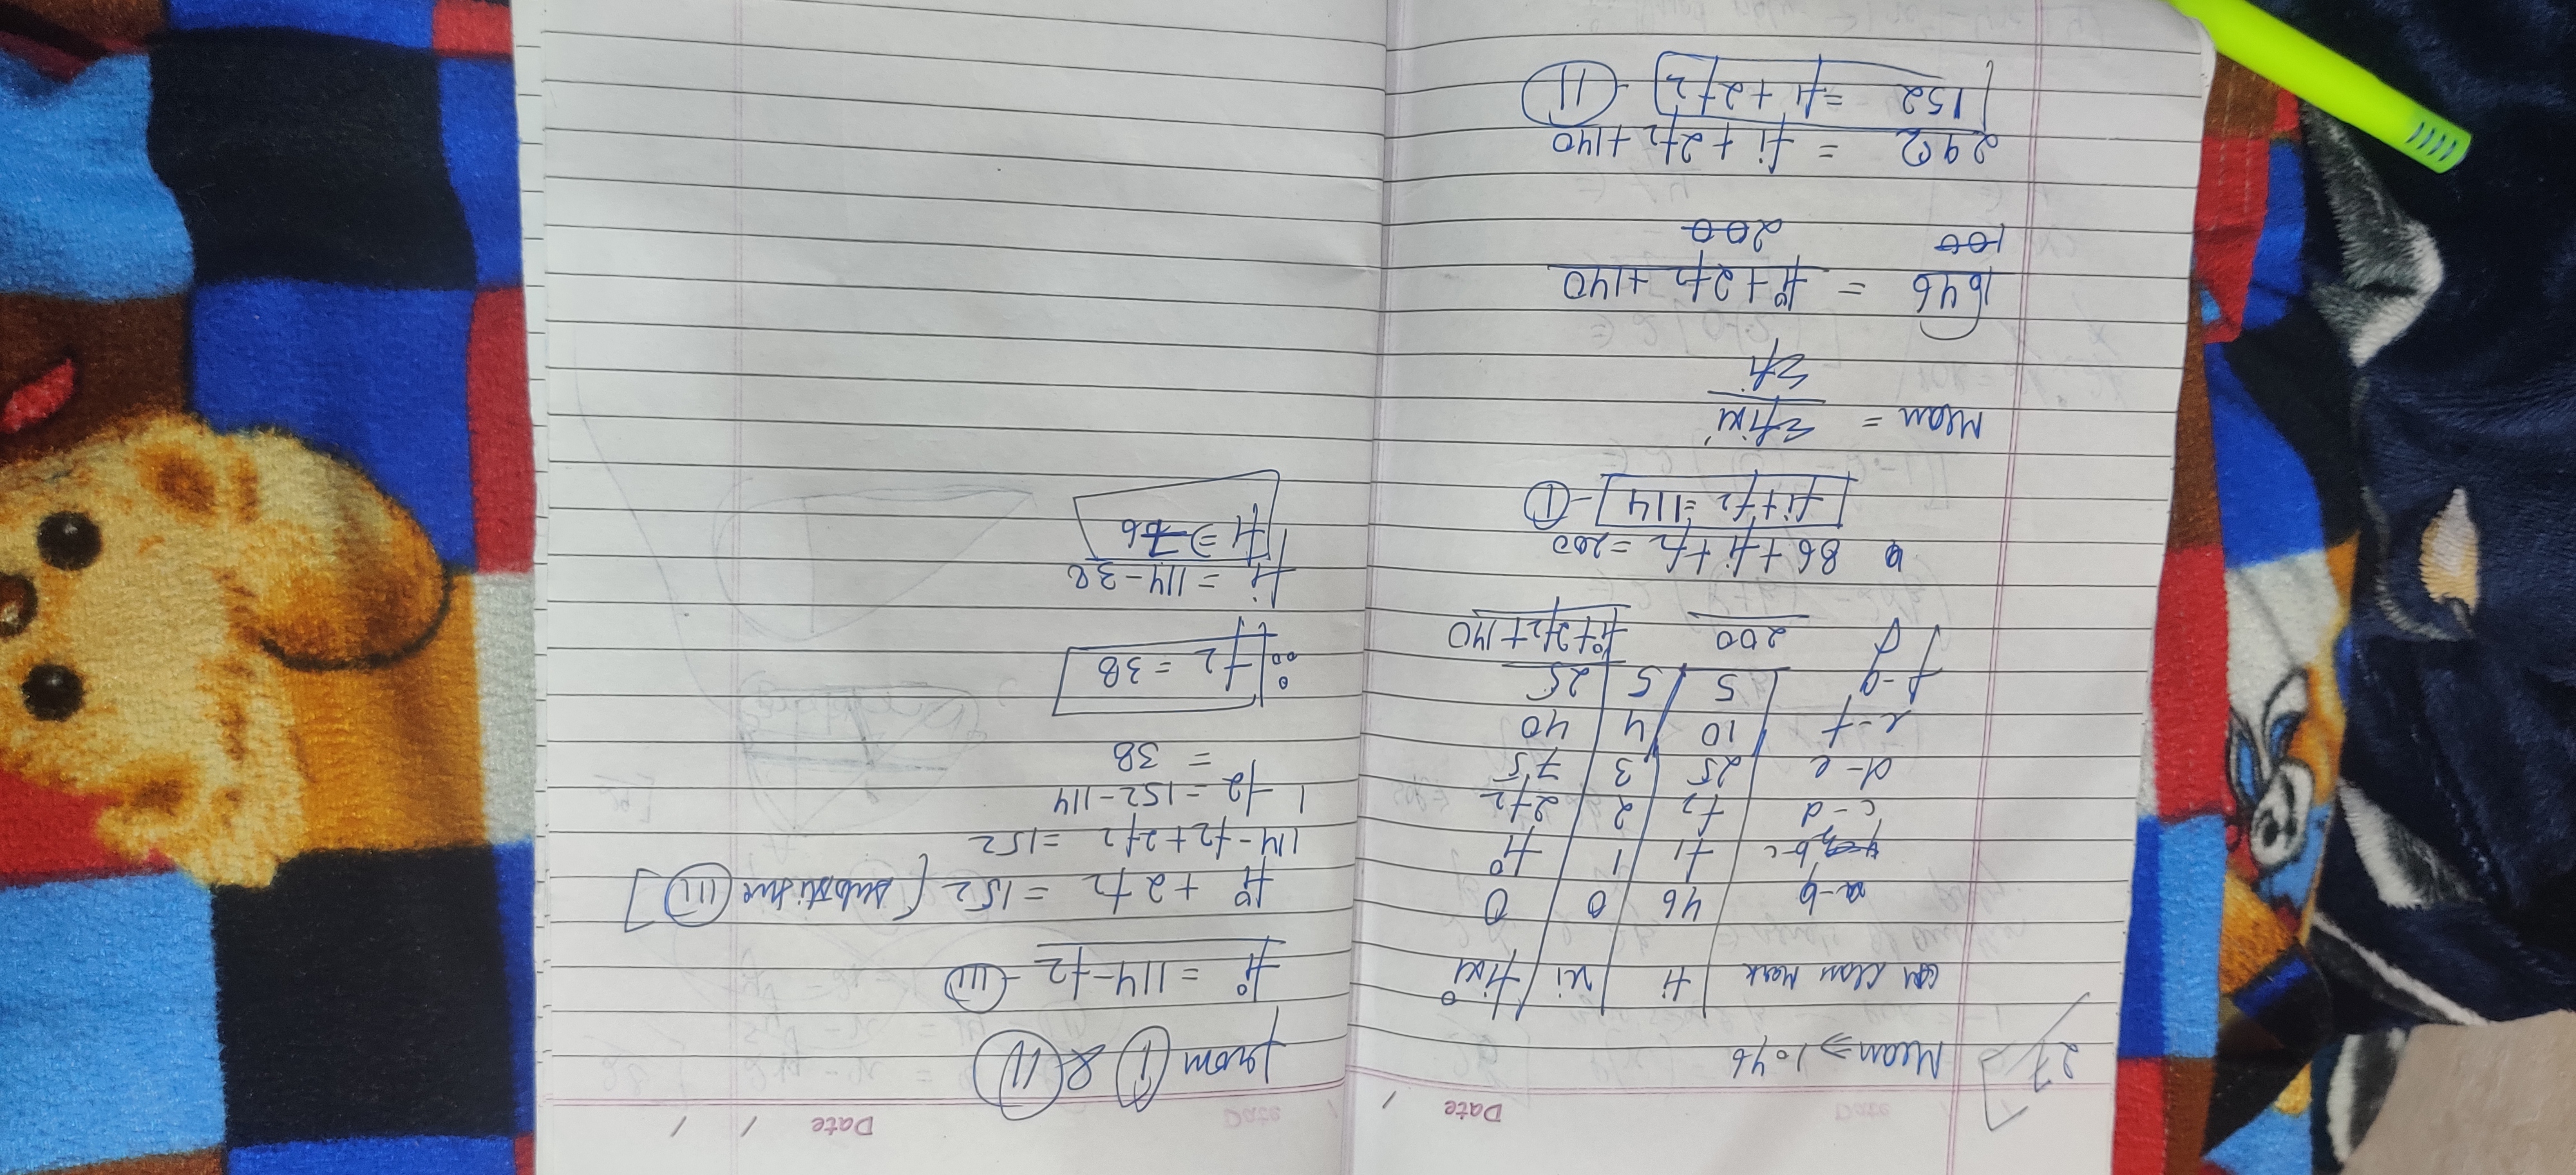 Date / /
27 Mean ⇒ 1.46
Class Mark | fi | xi | fixi
a-b 46 0 0
b-c f1 1 f1
c-d f2 2 2f2
d-e 25 3 75
e-f 10 4 40
f-g 5 5 25
200 f1+2f2+140
86+f1+f2=200
f1+f2=114 - I
Mean = Σfixi
Σfi
146 = f1+2f2+140
100 200
292 = f1+2f2+140
152 = f1+2f2 - II
Date / /
from I & II
f1 = 114-f2 - III
f1+2f2=152 [substitute III]
114-f2+2f2 =152
f2 =152-114
= 38
f2 = 38
f1 = 114-38
f1 ⇒ 76